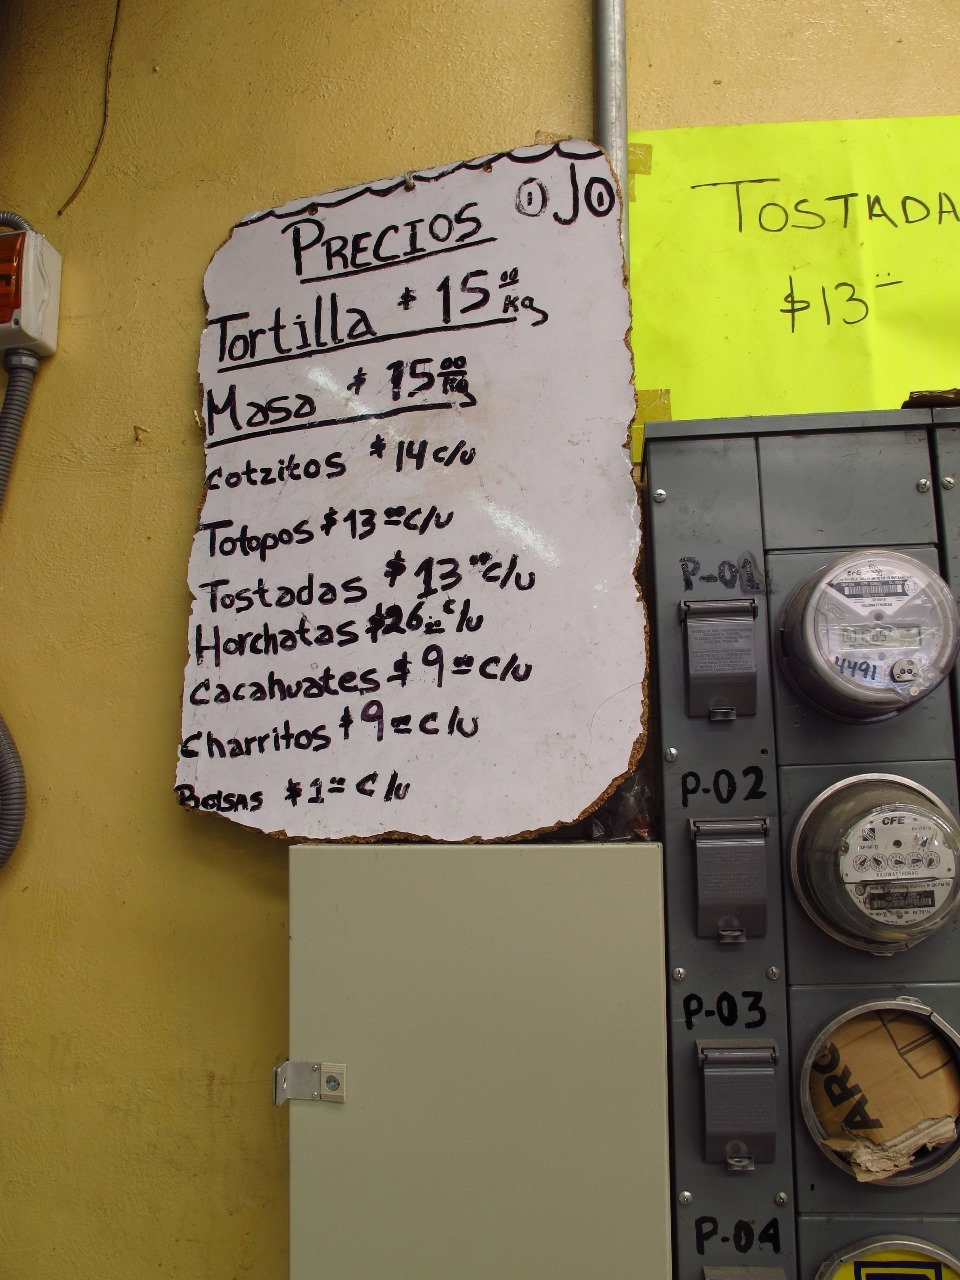 OJO
PRECIOS
Tortilla $ 15.00 Kg
Masa $ 15.00 Kg
cotzitos $14 c/u
Totopos $13.00 c/u
Tostadas $13.00 c/u
Horchatas $26.00 c/u
Cacahuates $9.00 c/u
Charritos $9.00 c/u
Bolsas $1.00 c/u
TOSTADA
$13
P-01
4491
P-02
CFE
KILOWATTHORAS
P-03
ARC
P-04